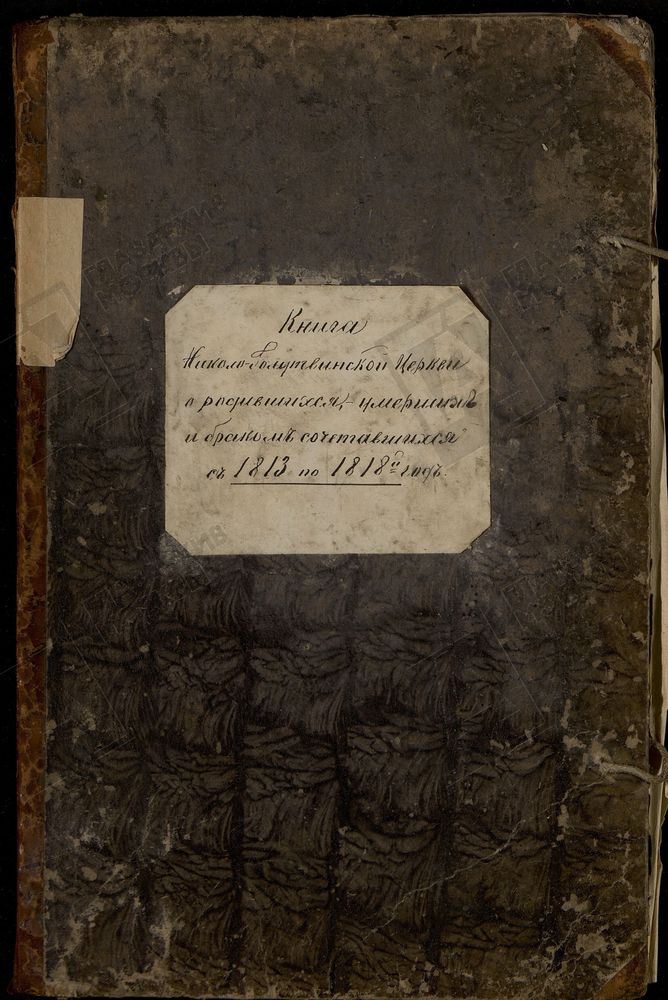 Книга
Николо-Голутвинской Церкви
о родившихся, умерших
и бракомъ сочетавшихся
съ 1813 по 1818й годъ.